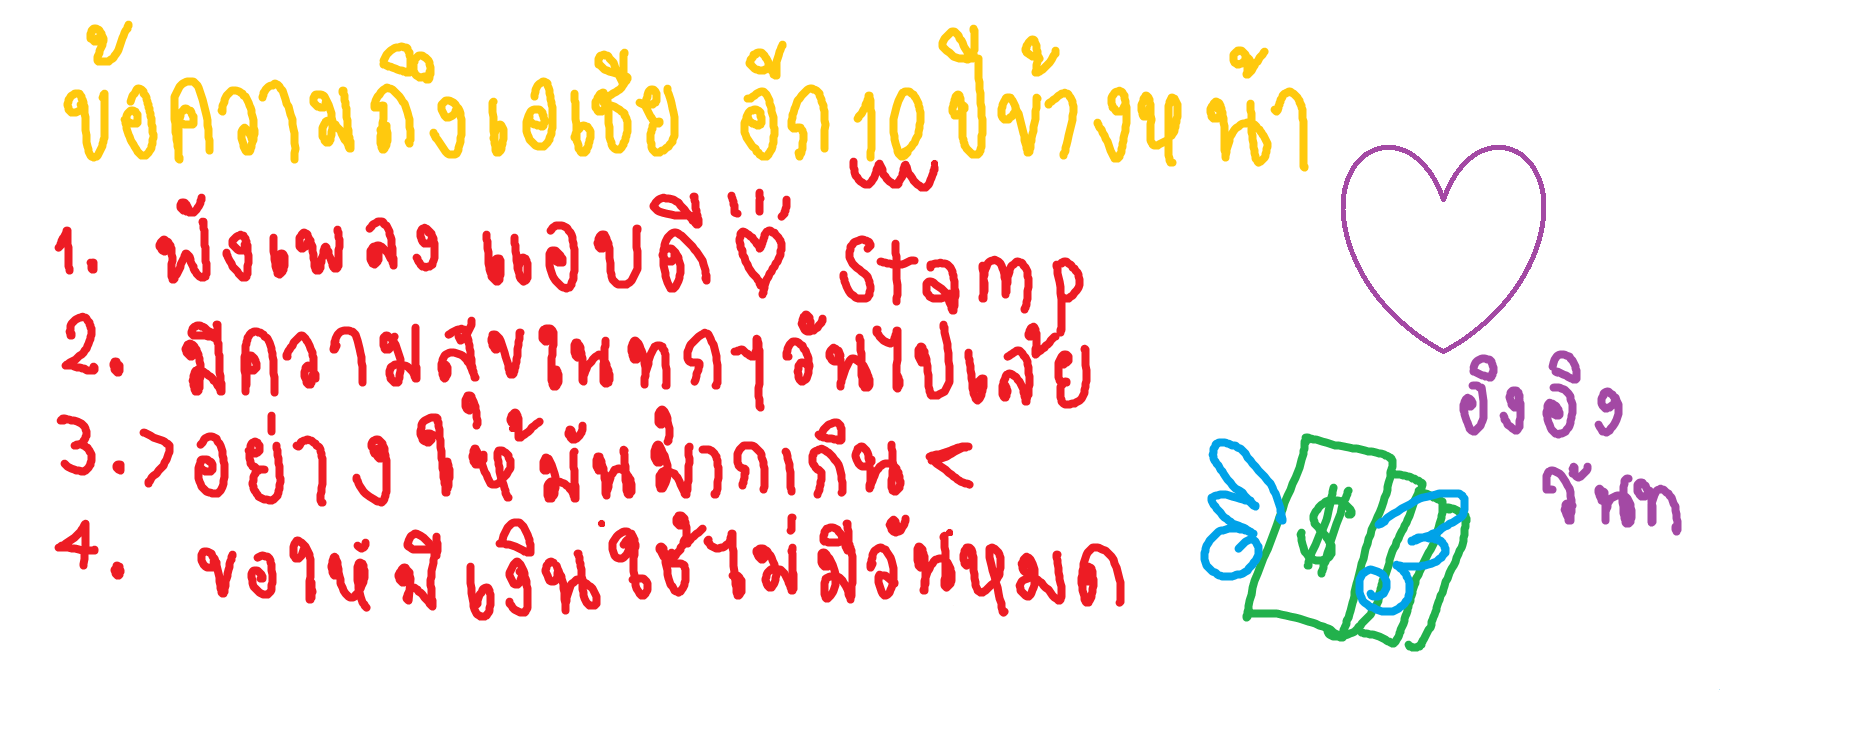 ข้อความถึงเอเชีย อีก10ปีข้างหน้า
1. ฟังเพลง แอบดี Stamp
2. มีความสุขในทกๆวันไปเล้ย
3. >อย่างให้มันม่ากเกิน<
4. ขอให้มีเงินใช้ไม่มีวันหมด
อิงอิง
วันท
$